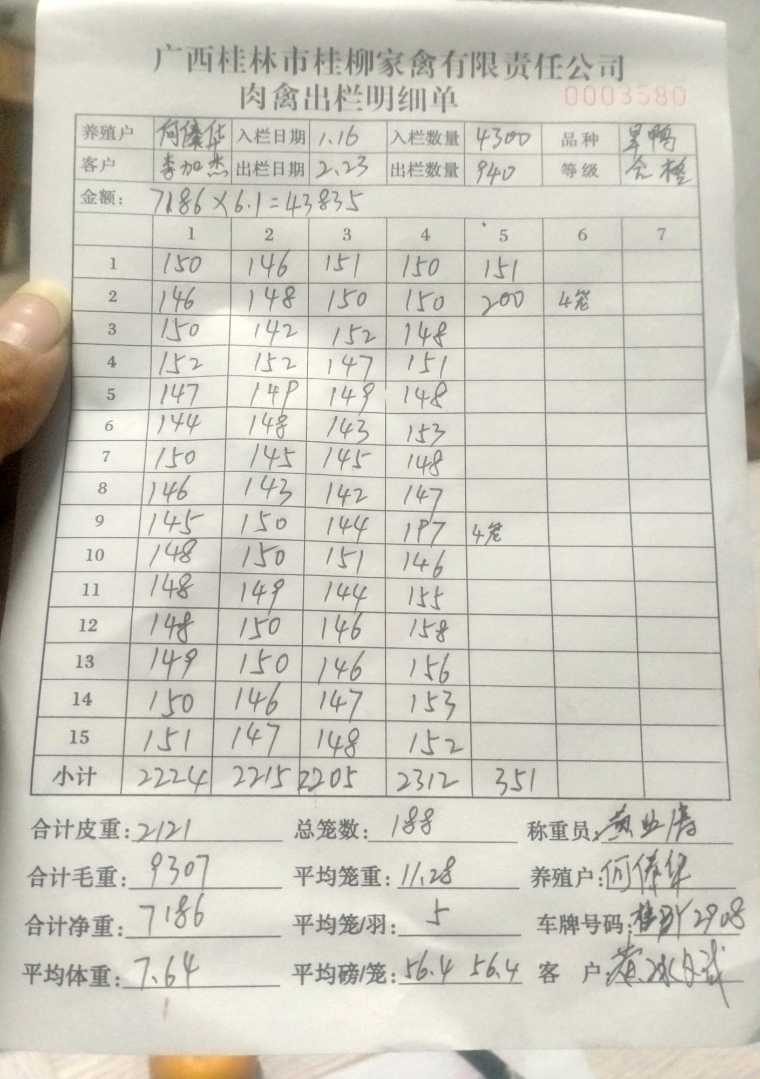 广西桂林市桂柳家禽有限责任公司
肉禽出栏明细单 0003580
养殖户 何傣华 入栏日期 1.16 入栏数量 4300 品种 旱鸭
客户 李加杰 出栏日期 2.23 出栏数量 940 等级 合格
金额: 7186×6.1=43835
1 2 3 4 5 6 7
1 150 146 151 150 151
2 146 148 150 150 200 4笼
3 150 142 152 148
4 152 152 147 151
5 147 149 149 148
6 144 148 143 153
7 150 145 145 148
8 146 143 142 147
9 145 150 144 197 4笼
10 148 150 151 146
11 148 149 144 155
12 148 150 146 158
13 149 150 146 156
14 150 146 147 153
15 151 147 148 152
小计 2224 2215 2205 2312 351
合计皮重: 2121 总笼数: 188 称重员:
合计毛重: 9307 平均笼重: 11.28 养殖户: 何傣华
合计净重: 7186 平均笼/羽: 5 车牌号码: 2908
平均体重: 7.64 平均磅/笼: 56.4 56.4 客户: